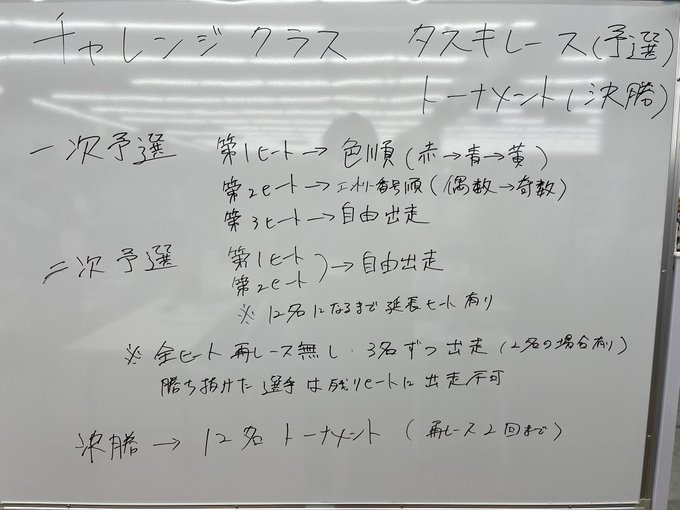 チャレンジクラス タスキレース(予選)
トーナメント(決勝)
一次予選 第1ヒート→色順(赤→青→黄)
第2ヒート→エントリー番号順(偶数→奇数)
第3ヒート→自由出走
二次予選 第1ヒート
第2ヒート )→自由出走
※12名になるまで延長ヒート有り
※全ヒート再レース無し・3名ずつ出走(2名の場合有り)
勝ち抜けた選手は残りヒートに出走不可
決勝→12名トーナメント(再レース2回まで)